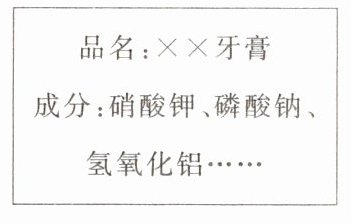 品名:××牙膏
成分:硝酸钾、磷酸钠、
氢氧化铝……